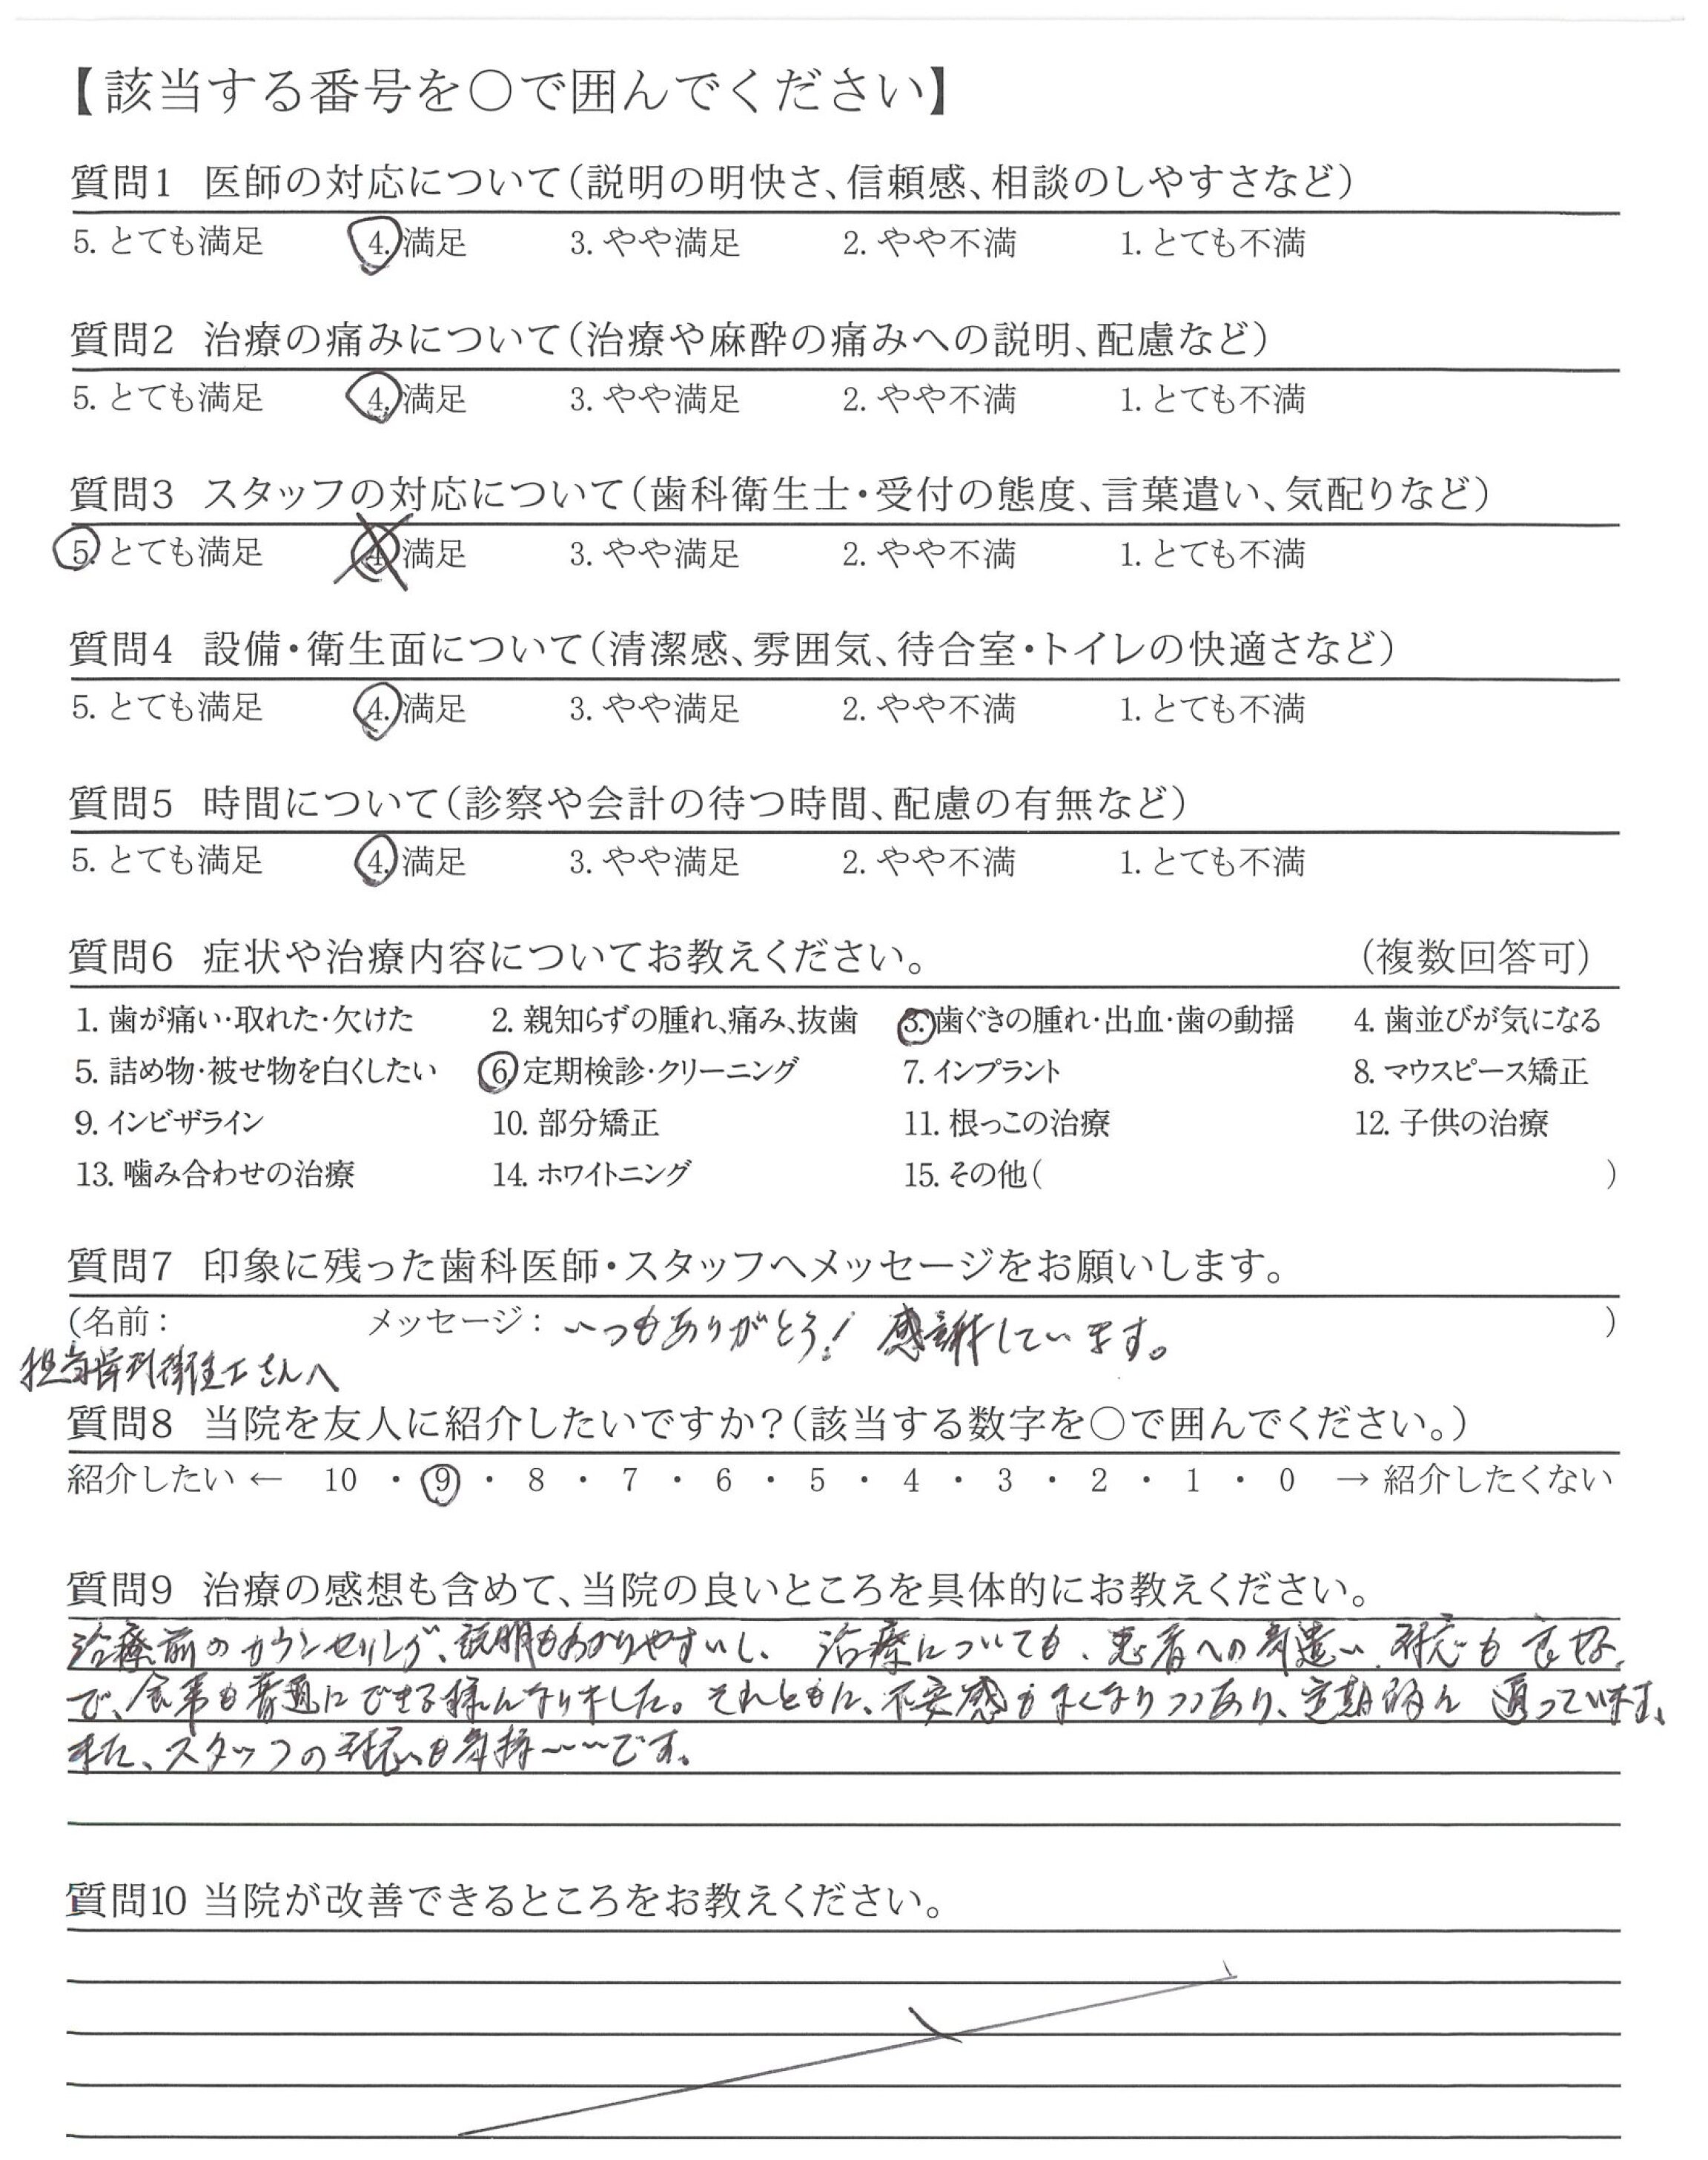 【該当する番号を○で囲んでください】
質問1 医師の対応について(説明の明快さ、信頼感、相談のしやすさなど)
5. とても満足 4. 満足 3. やや満足 2. やや不満 1. とても不満
質問2 治療の痛みについて(治療や麻酔の痛みへの説明、配慮など)
5. とても満足 4. 満足 3. やや満足 2. やや不満 1. とても不満
質問3 スタッフの対応について(歯科衛生士・受付の態度、言葉遣い、気配りなど)
5. とても満足 4. 満足 3. やや満足 2. やや不満 1. とても不満
質問4 設備・衛生面について(清潔感、雰囲気、待合室・トイレの快適さなど)
5. とても満足 4. 満足 3. やや満足 2. やや不満 1. とても不満
質問5 時間について(診察や会計の待つ時間、配慮の有無など)
5. とても満足 4. 満足 3. やや満足 2. やや不満 1. とても不満
質問6 症状や治療内容についてお教えください。 (複数回答可)
1. 歯が痛い・取れた・欠けた 2. 親知らずの腫れ、痛み、抜歯 3. 歯ぐきの腫れ・出血・歯の動揺 4. 歯並びが気になる
5. 詰め物・被せ物を白くしたい 6. 定期検診・クリーニング 7. インプラント 8. マウスピース矯正
9. インビザライン 10. 部分矯正 11. 根っこの治療 12. 子供の治療
13. 噛み合わせの治療 14. ホワイトニング 15. その他( )
質問7 印象に残った歯科医師・スタッフへメッセージをお願いします。
(名前: メッセージ: いつもありがとう! 感謝しています。 )
担当歯科衛生士さんへ
質問8 当院を友人に紹介したいですか?(該当する数字を○で囲んでください。)
紹介したい ← 10 ・ 9 ・ 8 ・ 7 ・ 6 ・ 5 ・ 4 ・ 3 ・ 2 ・ 1 ・ 0 → 紹介したくない
質問9 治療の感想も含めて、当院の良いところを具体的にお教えください。
治療前のカウンセリング、説明もわかりやすいし、治療についても、患者への気遣い、対応も良好
で、食事も普通にできる様になりました。それとともに、不安感もなくなりつつあり、定期的に通っています。
また、スタッフの対応も気持いいです。
質問10 当院が改善できるところをお教えください。